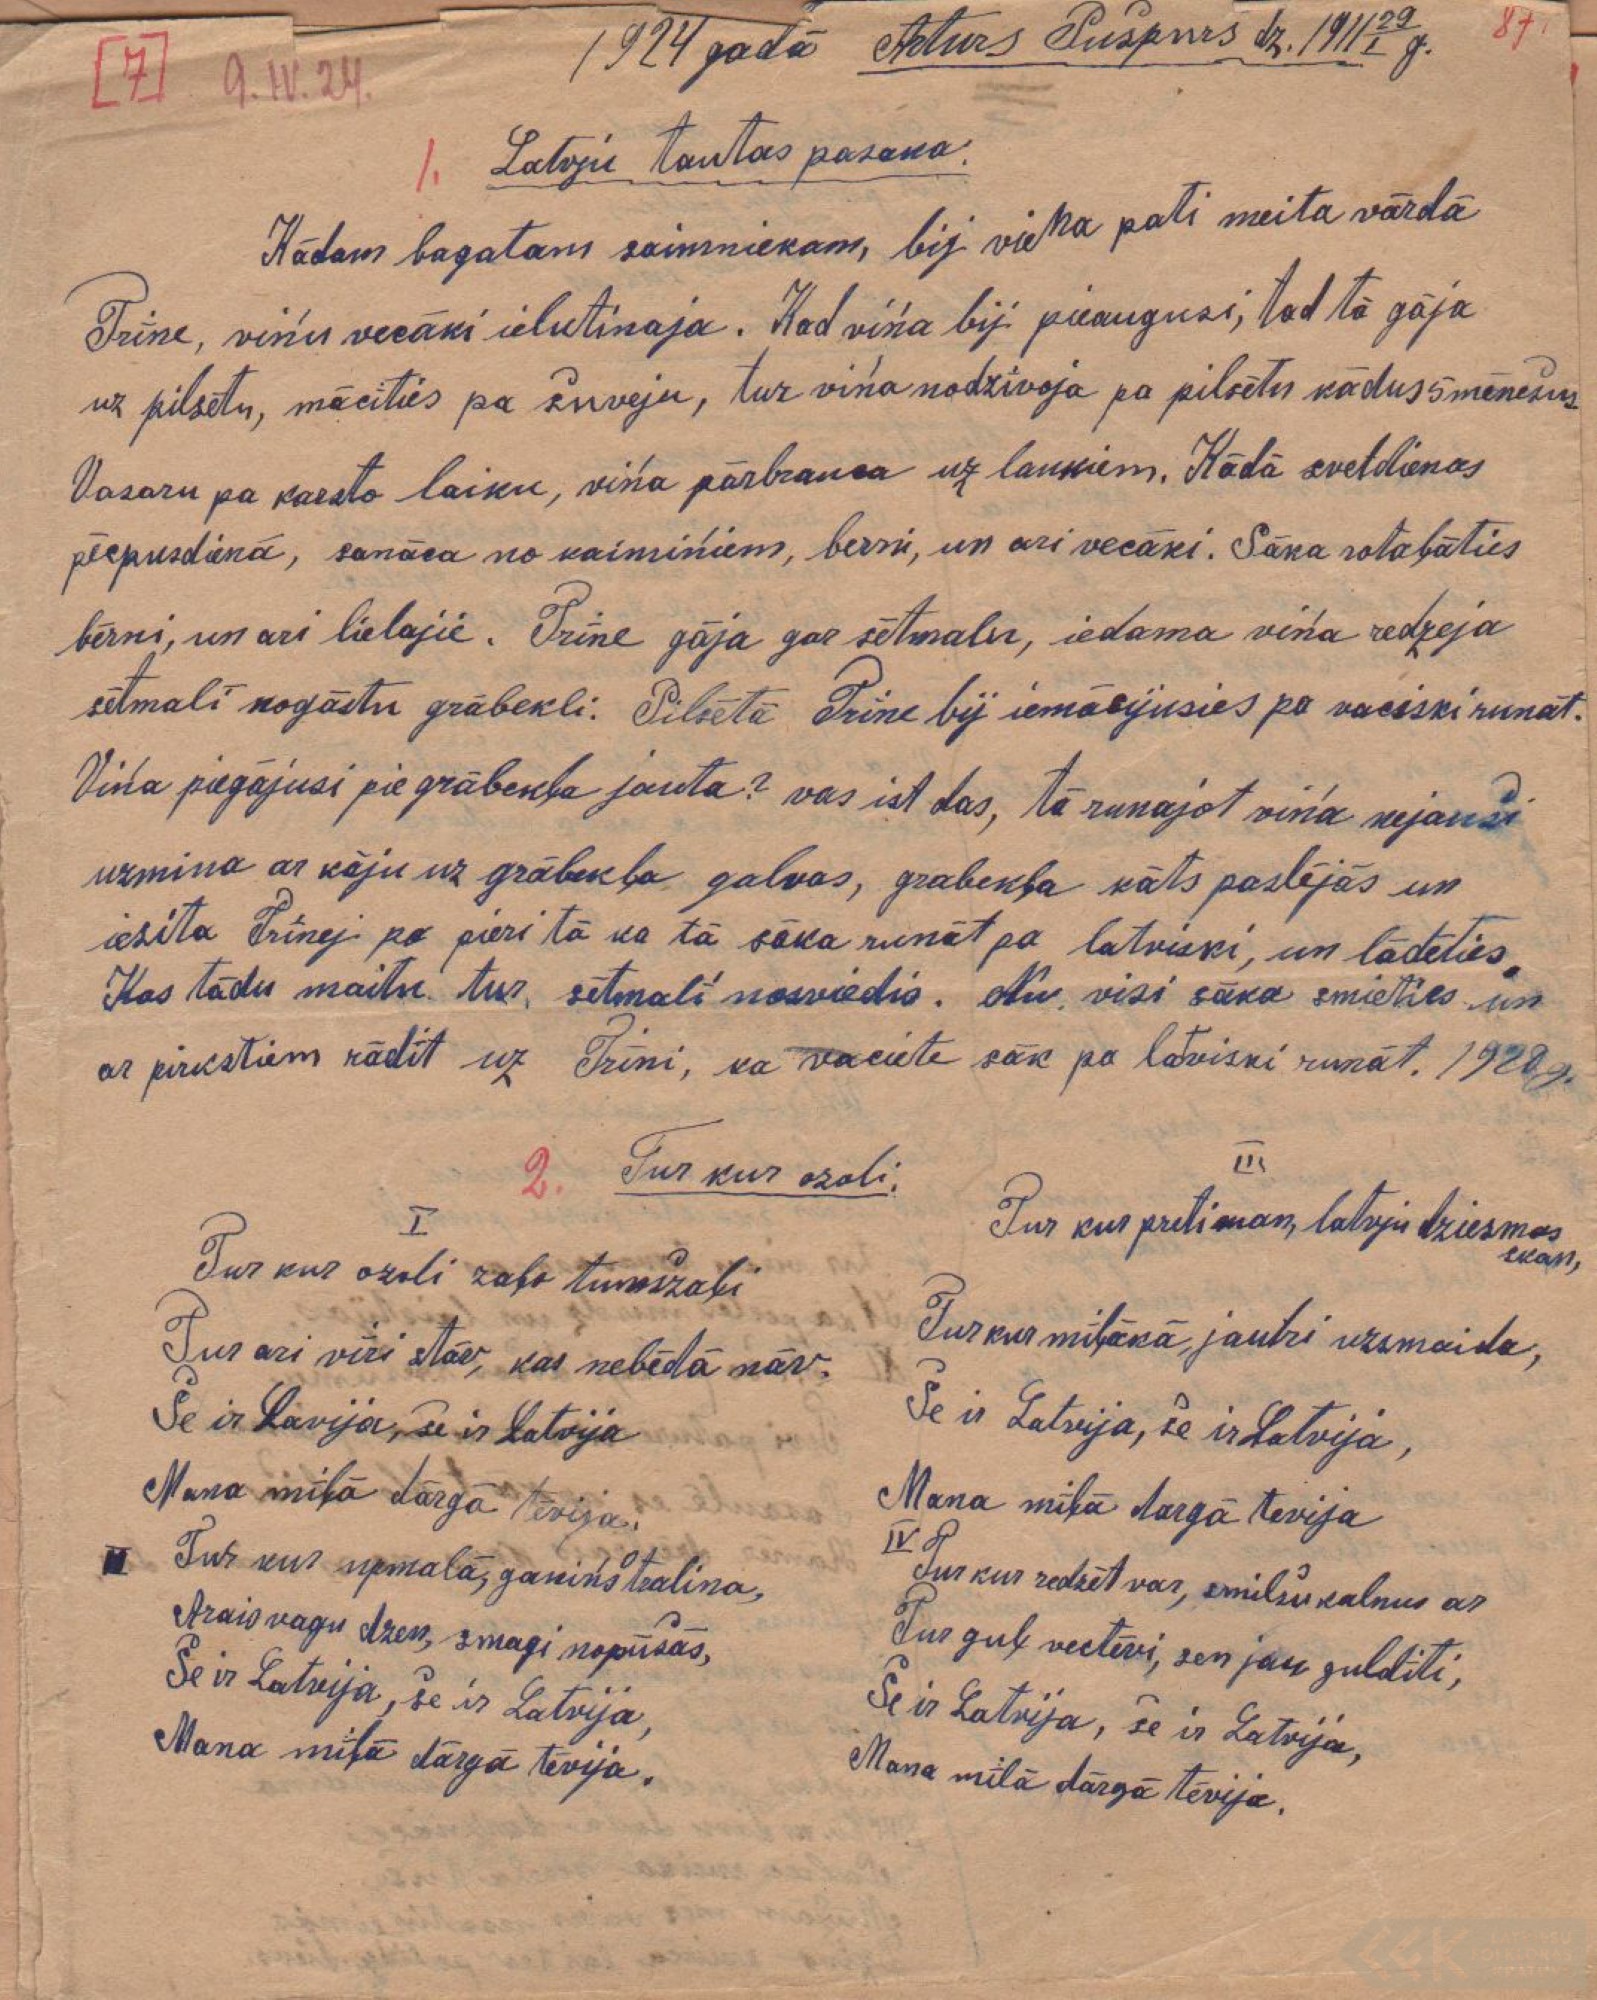 [7] 9.IV.24.
1924 gadā Arturs Pušpurs dz. 1911 29/I g.
87.
1. Latvju tautas pasaka.
Kādam bagatam saimniekam, bij viena pati meita vārdā
Trīne, viņu vecāki ielutinaja. Kad viņa bij pieaugusi, tad tā gāja
uz pilsētu, mācīties pa šuveju, tur viņa nodzivoja pa pilsētu kādus 5 mēnešus
Vasaru pa karsto laiku, viņa pārbrauca uz laukiem. Kādā svetdienas
pēcpusdienā, sanāca no kaimiņiem, berni, un ari vecāki. Sāka rotaļāties
bērni, un ari lielajie. Trīne gāja gar sētmalu, iedama viņa redzeja
sētmalī nogāstu grābekli. Pilsētā Trīne bij iemācijusies pa vaciski runāt.
Viņa piegājusi pie grābekļa jauta? vas ist das, tā runajot viņa nejauši
uzmina ar kāju uz grābekļa galvas, grabekļa kāts paslējās un
iesita Trīnej pa pieri tā ka tā sāka runāt pa latviski, un lādēties.
Kas tādu maitu tur, sētmalī nosviedis. Nu, visi sāka smieties un
ar pirkstiem rādīt uz Trīni, ka vaciete sāk pa latviski runāt. 1920g.
2. Tur kur ozoli.
I
Tur kur ozoli zaļo tumšzaļi
Tur ari vīri stāv, kas nebēdā nāv.
Še ir Lavija, še ir Latvija
Mana mīļā dārgā tēvija.
II Tur kur upmalā, ganiņš tralina,
Arais vagu dzen, smagi nopūšās,
Še ir Latvija, še ir Latvija,
Mana mīļā dārgā tēvija.
III
Tur kur pretim man, latvju dziesmas
skan,
Tur kur mīļākā, jautri uzsmaida,
Še ir Latvija, še ir Latvija,
Mana mīļā dargā tevija
IV
Tur kur redzēt var, smilšu kalnus ar
Tur guļ vectēvi, sen jau gulditi,
Še ir Latvija, še ir Latvija,
Mana mīlā dārgā tēvija.